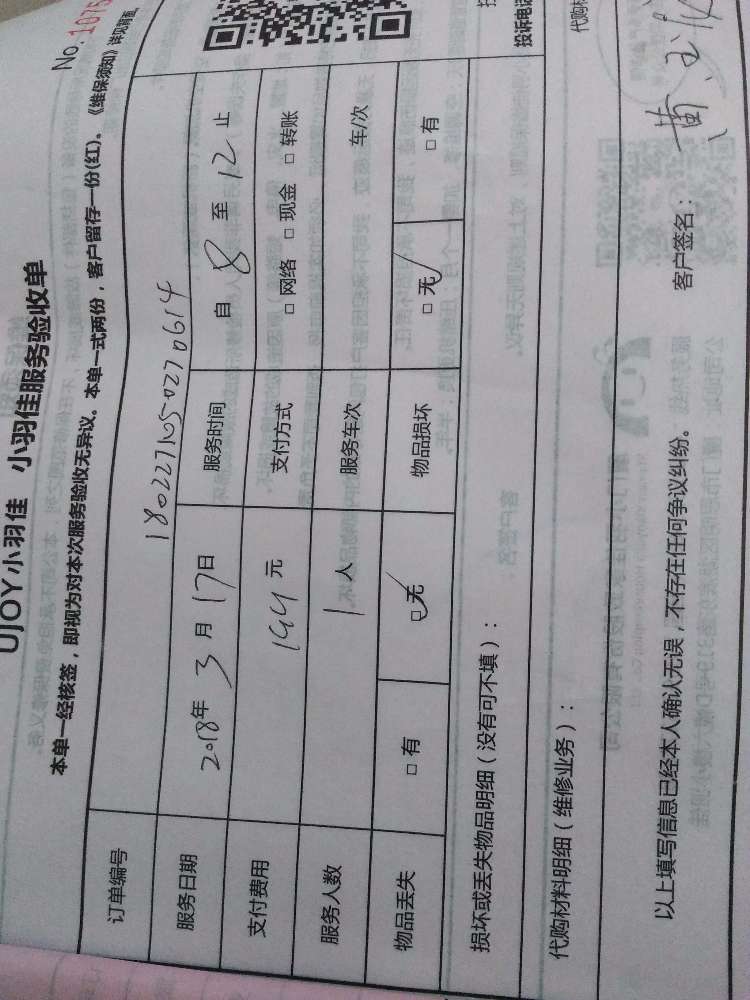 No. 1075
UJOY小羽佳 小羽佳服务验收单
本单一经核签，即视为对本次服务验收无异议。本单一式两份，客户留存一份(红)。《维保须知》详见背面
订单编号 180227105-0270614
服务日期 2018年 3 月 17 日 服务时间 自 8 至 12 止
支付费用 199 元 支付方式 □ 网络 □ 现金 □ 转账
服务人数 1 人 服务车次 车/次
物品丢失 □ 有 □ 无 物品损坏 □ 无 □ 有
损坏或丢失物品明细（没有可不填）： 投诉电话
代购材料明细（维修业务）： 代购材
以上填写信息已经本人确认无误，不存在任何争议纠纷。 客户签名：